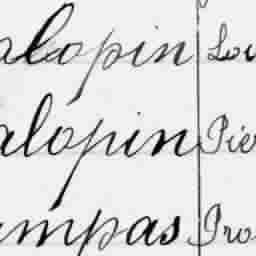 alopin Lou
alopin Pier
ampas Pro